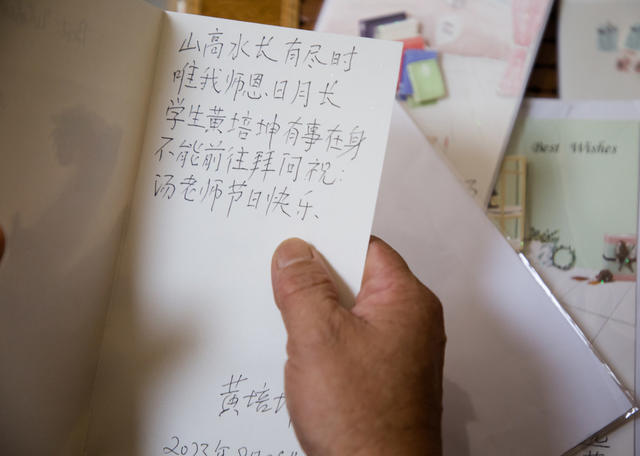 山高水长有尽时
唯我师恩日月长
学生黄培坤有事在身
不能前往拜问祝:
汤老师节日快乐、
黄培
2023年
Best Wishes